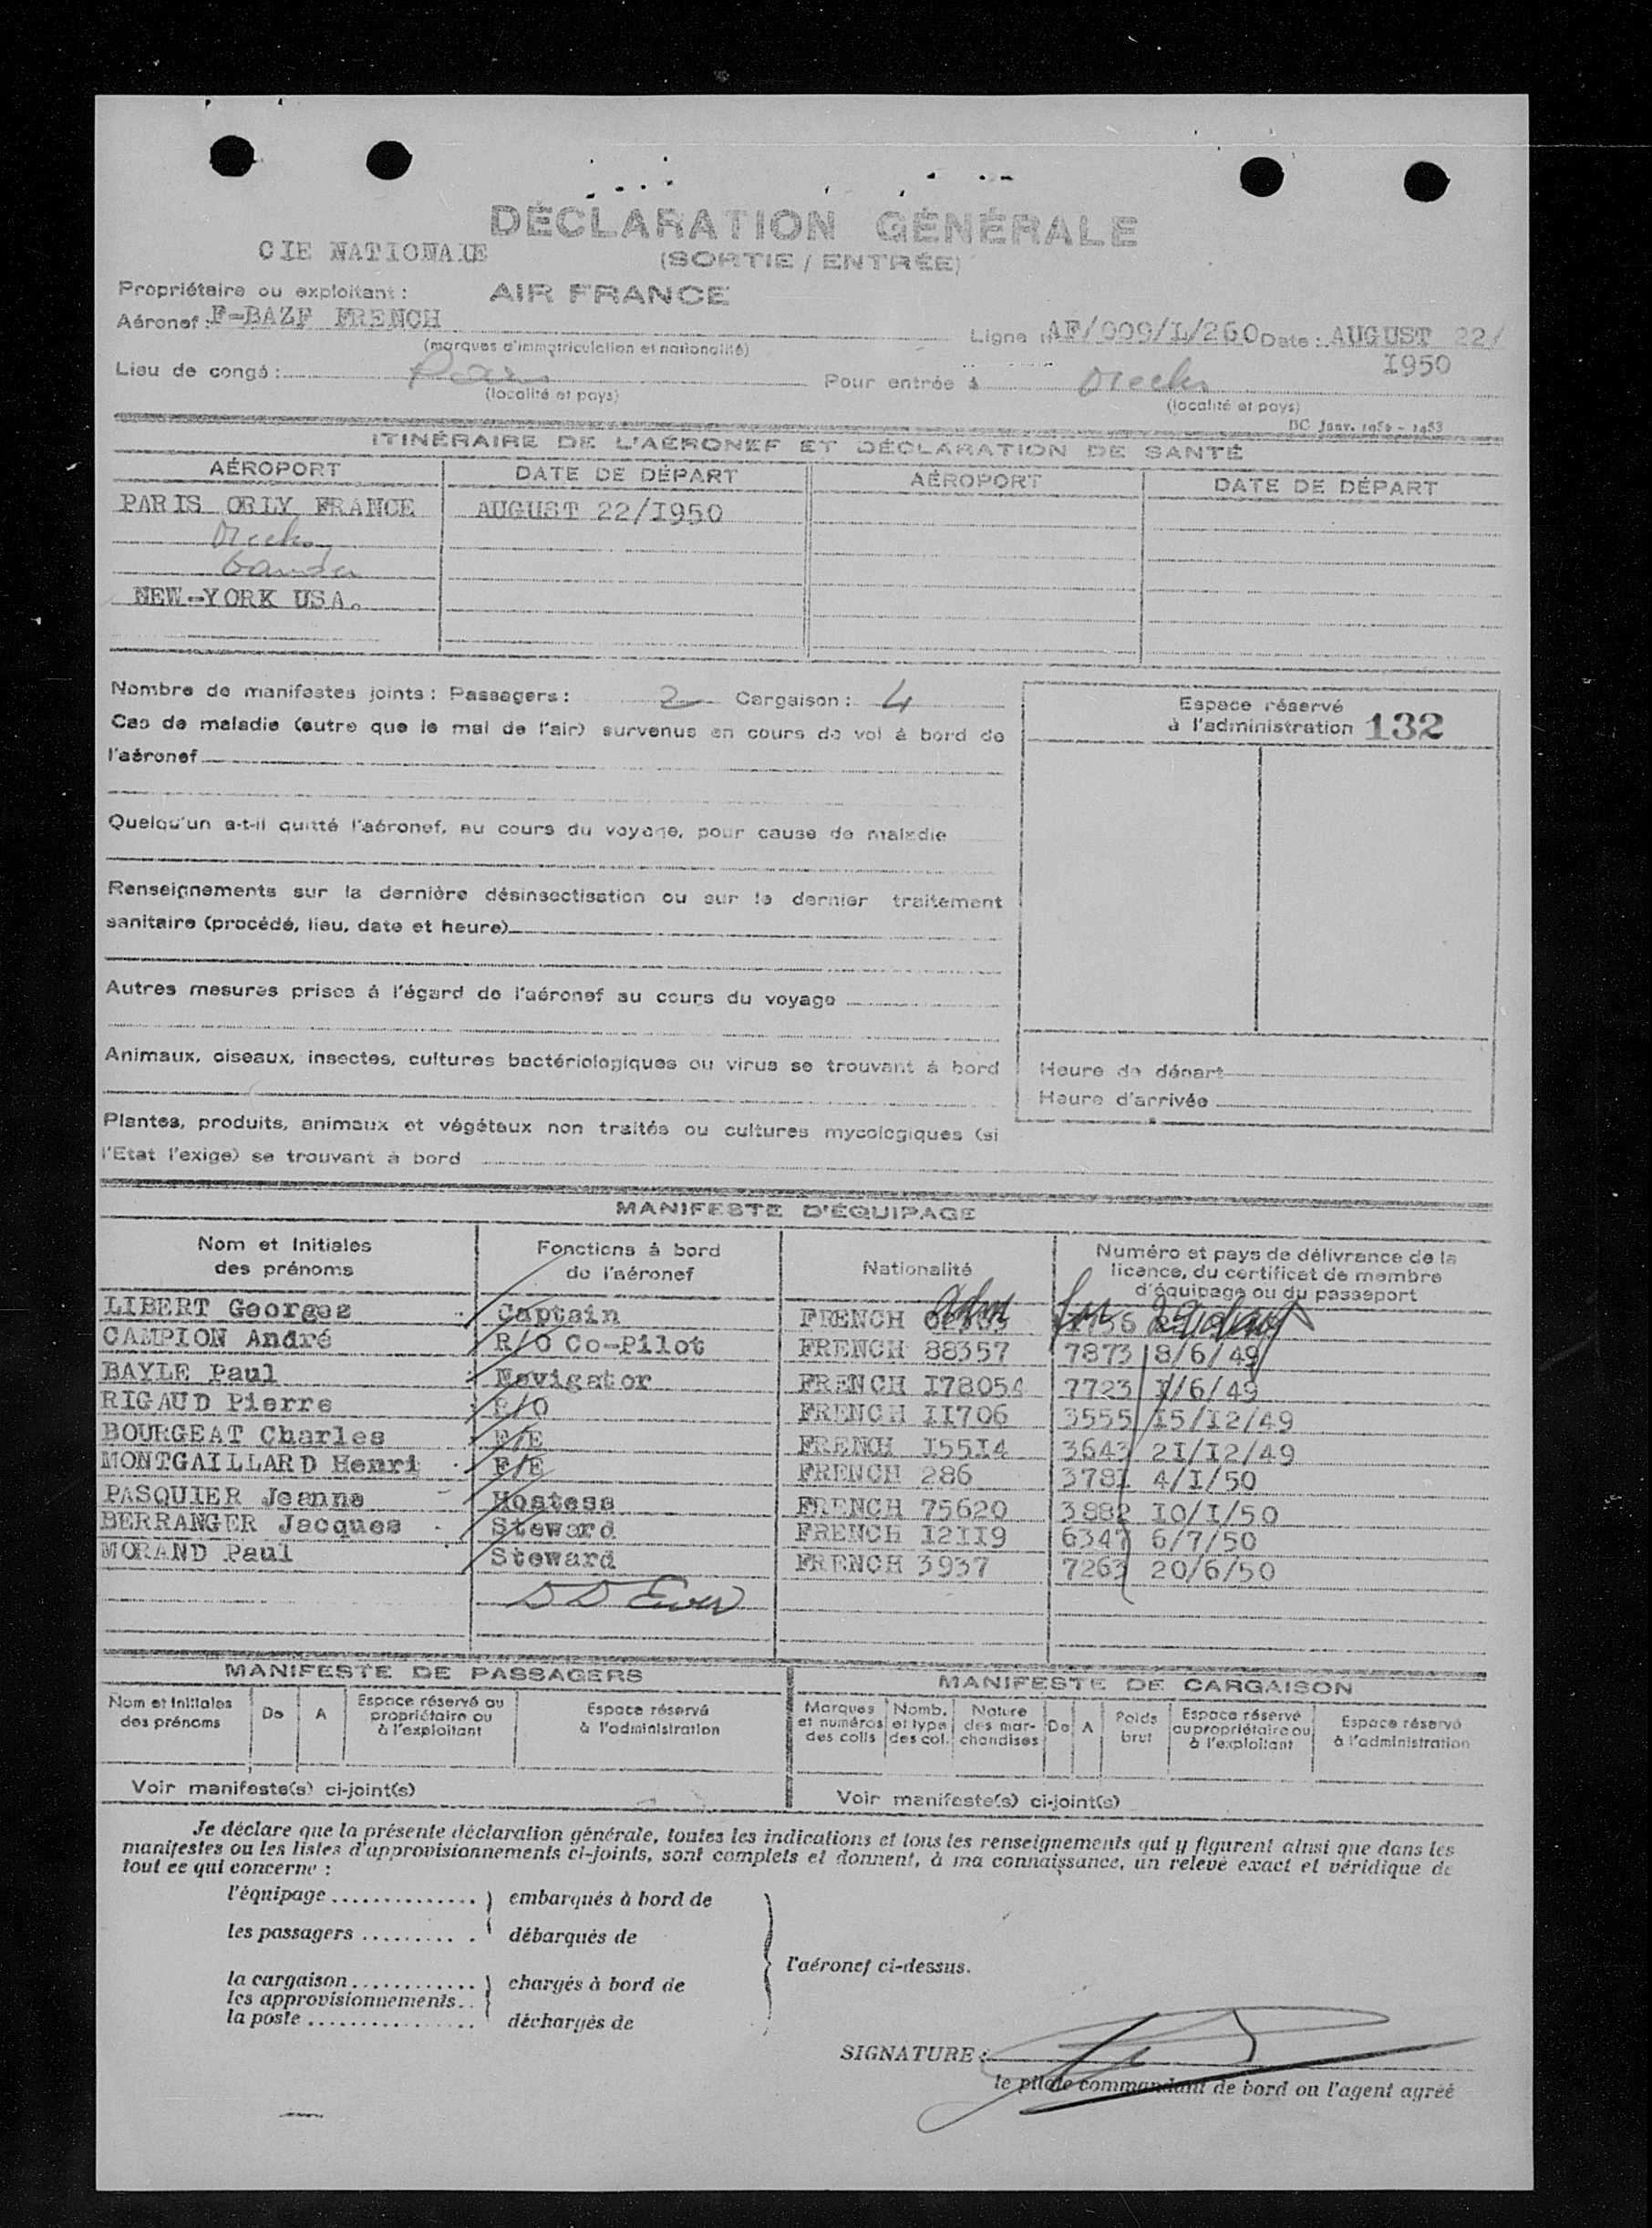 DÉCLARATION GÉNÉRALE
CIE NATIONALE
(SORTIE / ENTRÉE)
Propriétaire ou exploitant : AIR FRANCE
Aéronef : F-BAZF FRENCH
(marques d'immatriculation et nationalité)
Ligne : AF/009/L/260 Date : AUGUST 22/
1950
Lieu de congé :
(localité et pays)
Pour entrée à
(localité et pays)
ITINÉRAIRE DE L'AÉRONEF ET DÉCLARATION DE SANTÉ
AÉROPORT DATE DE DÉPART AÉROPORT DATE DE DÉPART
PARIS ORLY FRANCE AUGUST 22/I950
Gander
NEW-YORK USA.
Nombre de manifestes joints : Passagers : 2 Cargaison : 4
Cas de maladie (autre que le mal de l'air) survenus en cours de vol à bord de
l'aéronef
Espace réservé
à l'administration 132
Quelqu'un a-t-il quitté l'aéronef, au cours du voyage, pour cause de maladie
Renseignements sur la dernière désinsectisation ou sur le dernier traitement
sanitaire (procédé, lieu, date et heure)
Autres mesures prises à l'égard de l'aéronef au cours du voyage
Animaux, oiseaux, insectes, cultures bactériologiques ou virus se trouvant à bord
Heure de départ
Heure d'arrivée
Plantes, produits, animaux et végétaux non traités ou cultures mycologiques (si
l'Etat l'exige) se trouvant à bord
MANIFESTE D'ÉQUIPAGE
Nom et Initiales
des prénoms
Fonctions à bord
de l'aéronef
Nationalité
Numéro et pays de délivrance de la
licence, du certificat de membre
d'équipage ou du passeport
LIBERT Georges Captain FRENCH
CAMPION André R/O Co-Pilot FRENCH 88357 7873 8/6/49
BAYLE Paul Navigator FRENCH I78054 7723 I/6/49
RIGAUD Pierre R/O FRENCH II706 3555 I5/I2/49
BOURGEAT Charles F/E FRENCH I55I4 3643 2I/I2/49
MONTGAILLARD Henri F/E FRENCH 286 378I 4/I/50
PASQUIER Jeanne Hostess FRENCH 75620 3882 I0/I/50
BERRANGER Jacques Steward FRENCH I2II9 6347 6/7/50
MORAND Paul Steward FRENCH 3937 7263 20/6/50
MANIFESTE DE PASSAGERS
Nom et Initiales
des prénoms
De
A
Espace réservé au
propriétaire ou
à l'exploitant
Espace réservé
à l'administration
Voir manifeste(s) ci-joint(s)
MANIFESTE DE CARGAISON
Marques
et numéros
des colis
Nomb.
et type
des col.
Nature
des mar-
chandises
De
A
Poids
brut
Espace réservé
au propriétaire ou
à l'exploitant
Espace réservé
à l'administration
Voir manifeste(s) ci-joint(s)
Je déclare que la présente déclaration générale, toutes les indications et tous les renseignements qui y figurent ainsi que dans les
manifestes ou les listes d'approvisionnements ci-joints, sont complets et donnent, à ma connaissance, un relevé exact et véridique de
tout ce qui concerne :
l'équipage embarqués à bord de
les passagers débarqués de
l'aéronef ci-dessus.
la cargaison chargés à bord de
les approvisionnements
la poste déchargés de
SIGNATURE :
le pilote commandant de bord ou l'agent agréé